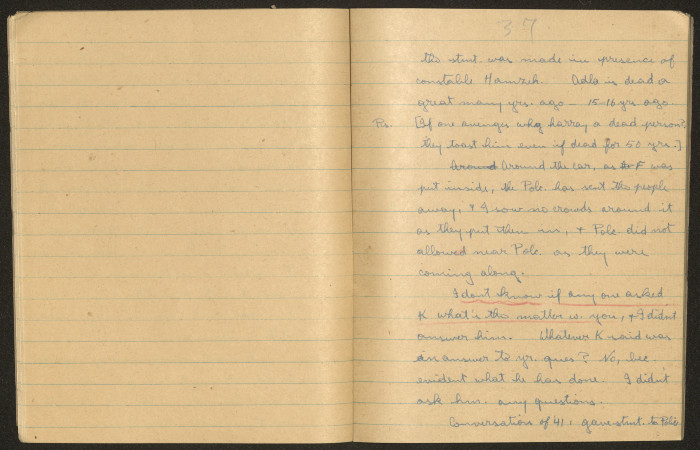 37
the stmt. was made in presence of
constable Hamzeh. Adla is dead a
great many yrs. ago - 15-16 yrs ago.
Ps. [If one avenges why harray a dead person?
they toast him even if dead for 50 yrs.]
Around Around the car, as F was
put inside, the Pole. has sent the people
away, & I saw no crowds around it
as they put them in, & Pole. did not
allowed near Pole. as they were
coming along.
I dont know if any one asked
K what's the matter w. you, & I didnt
answer him. Whatever K said was
an answer to yr. ques? No, bec.
evident what he has done. I didn't
ask him any questions.
Conversations of 41, gave stmt. to